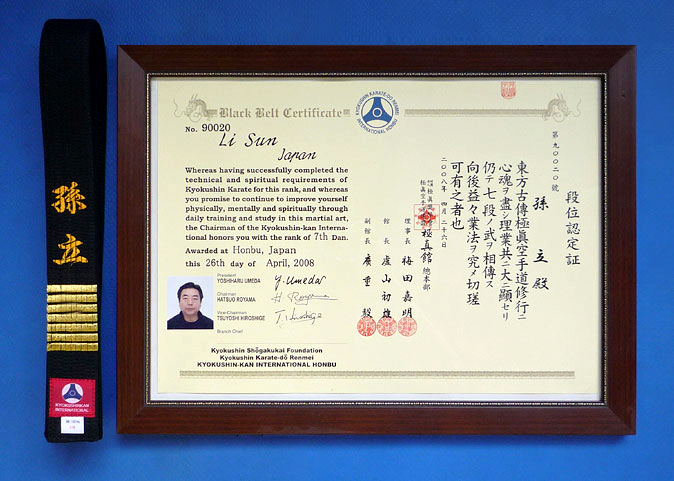 孫立
KYOKUSHINKAN
INTERNATIONAL
Black Belt Certificate
KYOKUSHIN KARATE-DŌ RENMEI
INTERNATIONAL HONBU
No. 90020
Li Sun
Japan
Whereas having successfully completed the
technical and spiritual requirements of
Kyokushin Karate for this rank, and whereas
you promise to continue to improve yourself
physically, mentally and spiritually through
daily training and study in this martial art,
the Chairman of the Kyokushin-kan Interna-
tional honors you with the rank of 7th Dan.
Awarded at Honbu, Japan
this 26th day of April, 2008
President
YOSHIHARU UMEDA
Y. Umeda
Chairman
HATSUO ROYAMA
H. Royama
Vice-Chairman
TSUYOSHI HIROSHIGE
T. Hiroshige
Branch Chief
Kyokushin Shōgakukai Foundation
Kyokushin Karate-dō Renmei
KYOKUSHIN-KAN INTERNATIONAL HONBU
段位認定証
第九〇〇二〇號
孫立殿
東方古傳極眞空手道修行ニ
心魂ヲ盡シ理業共ニ大ニ顯セリ
仍テ七段ノ武ヲ相傳ス
向後益々業法ヲ究メ切瑳
可有之者也
二〇〇八年 四月 二十六日
極真館 総本部
理事長 梅田嘉明
館長 盧山初雄
副館長 廣重毅